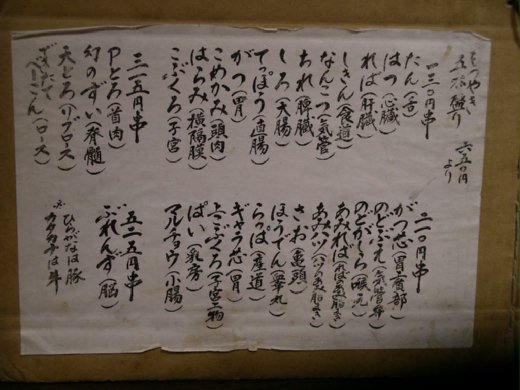 もつやき
五本縛り 六五〇円より
一三〇円串
たん(舌)
はつ(心臓)
れば(肝臓)
しきん(食道)
なんこつ(気管)
ちれ(脾臓)
しろ(大腸)
てっぽう(直腸)
がつ(胃)
こめかみ(頭肉)
はらみ(横隔膜)
こぶくろ(子宮)
三一五円串
Pとろ(首肉)
幻のずい(脊髄)
大とろ(リブロース)
べーこん(ロース)
二一〇円串
がつ芯(胃 部)
のどぶえ
のどがしら(喉元)
あみれば
あみハツ
さお(亀頭)
ほうでん(睾丸)
らっぱ(産道)
ギャラ芯(胃)
上こぶくろ(子宮 物)
ぱい(乳房)
マルチョウ(小腸)
五二五円串
ぶれんず(脳)
※ ひらがなは豚
カタカナは牛